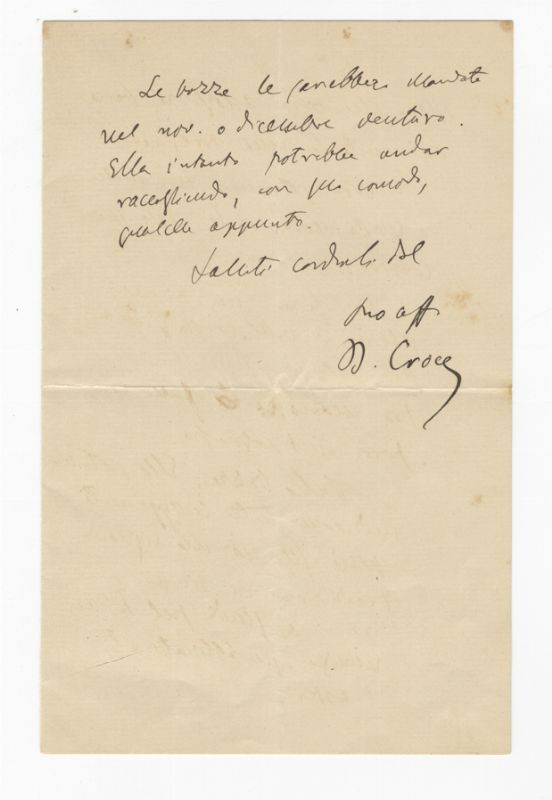 Le bozze le sarebbero mandate
nel nov. o dicembre venturo.
Ella intanto potrebbe andar
raccogliendo, con suo comodo,
qualche appunto.
Saluti cordiali dal
suo aff.
B. Croce